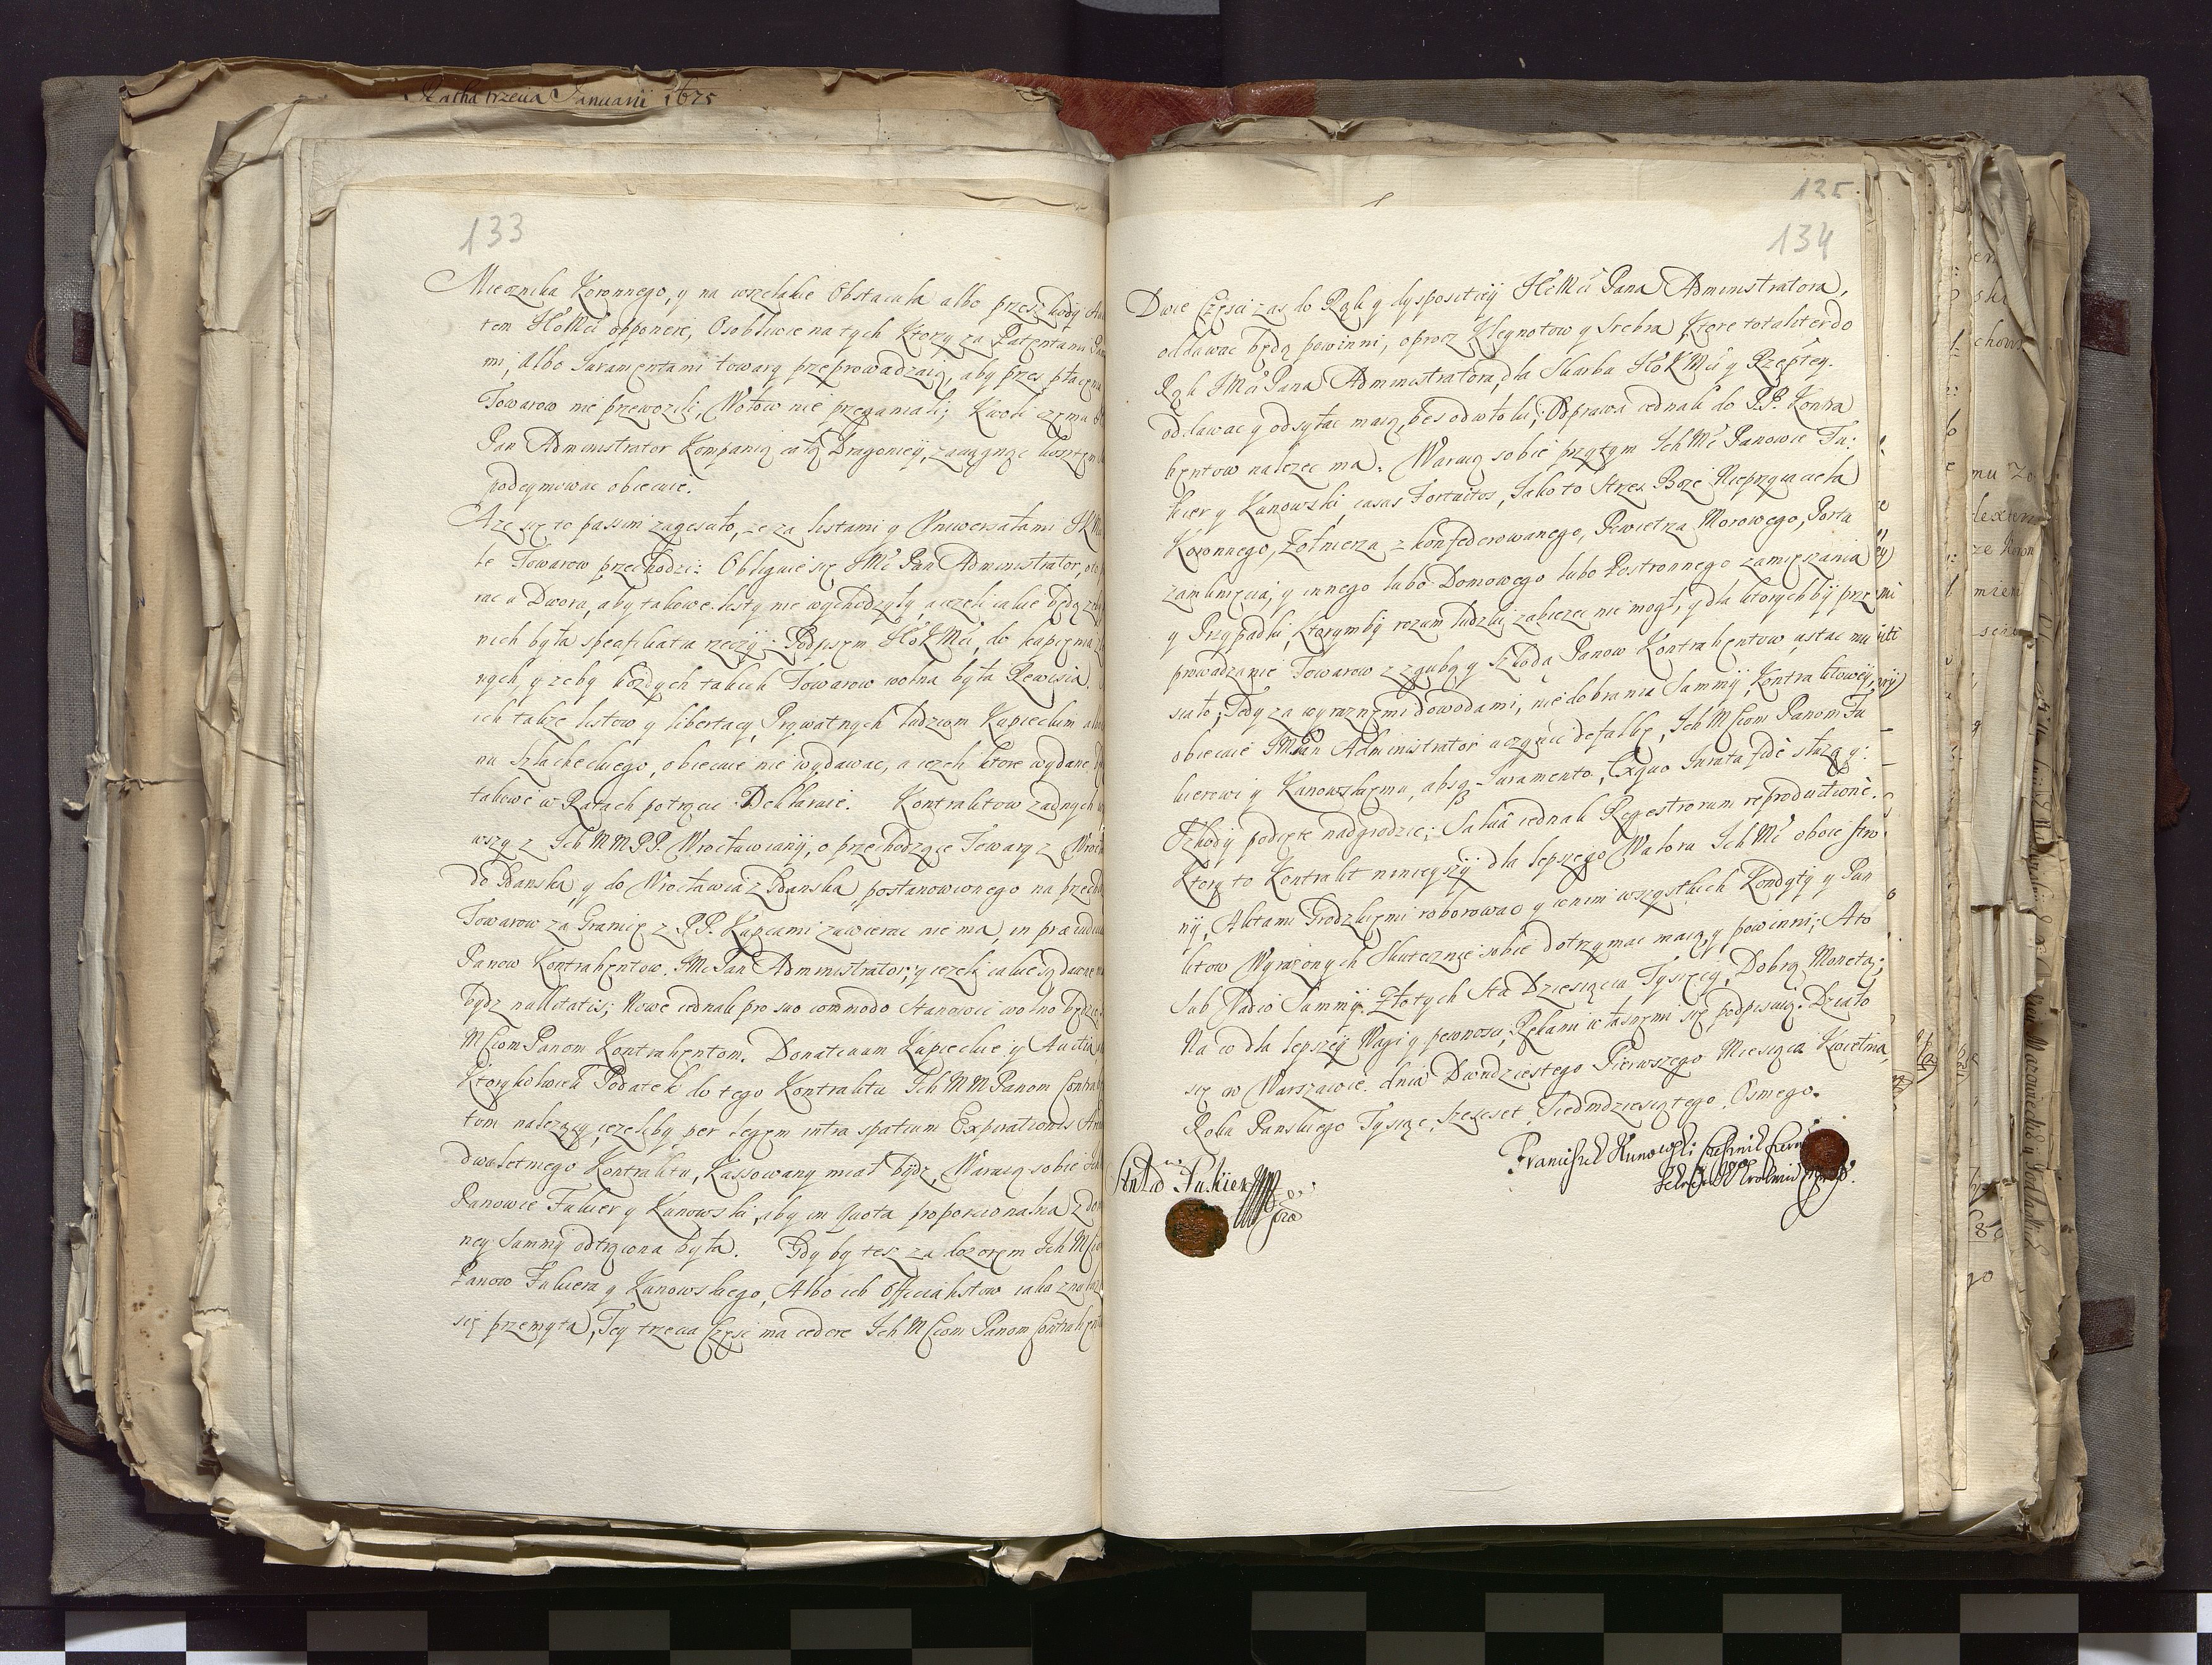 Ratha trzecia Januarii 1675
133
Miecznika Koronnego, y na wszelakie Obstacula albo przeszkody
tem JKoMci opponere, Osobliwie na tych Ktorzy za Patentami
mi, albo Juramentami towary przeprowadzaią, aby przez płacenia
Towarow nie przewozili, Wołow nie przeganiali; Kwoli czemu
Pan Administrator Kompanią całą Dragoniey, zaciągnąć kosztem
podeymować obiecuie.
A że się to passim zagęsciło, że za listami y Vniwersałami JKM
le Towarow przechodzi: Obliguie się JMć Pan Administrator,
rac u Dworu, aby takowe listy nie wychodzyły, a ieżeli iakie będą
nich była specificatia rzeczy: Podpisem JKoMci, do kupienia
nych, y żeby każdych takich Towarow wolna była Rewisia.
ich także listow y libertacy, Prywatnych Ludziom Kupieckim
nu Szlacheckiego, obiecuie nie wydawac, a ieżeli ktore wydane
takowe w Ratach potrącic Deklaruie. Kontraktow żadnych
wszy z Ich MM PP. Wrocławiany, o przechodzące Towary z
do Gdanska, y do Wrocławia z Gdanska, postanowionego na
Towarow za Granicę z PP. Kupcami zawierac nie ma, in praeiudicium
Panow Kontrahentow. JMć Pan Administrator; y ieżeli iakie są dawne
bydz nullitatis; Nowe iednak pro suo commodo Stanowic wolno będzie
MSciom Panom Kontrahentom. Donativum Kupieckie y Auctia
Ktorykolwiek Podatek do tego Kontraktu Ich MM Panom
tom należący, ieżeliby per legem intra spatium Expirationis
dwuletniego Kontraktu, Kassowany miał bydz, Waruią sobie
Panowie Fukier y Kunowski, aby im Quota proporcionalna z
ney Summy odtrącona była. Gdy by tesz za dozorem Ich
Panow Fukiera y Kunowskiego, Albo ich Officialistow iaka
się przemyta, Tey trzecia Częsc ma cedere Ich MSciom Panom
135
134
Dwie Częsci zas do Rąk y dyspositiey JKoMci Pana Administratora,
oddawac będą powinni, oprocz Kleynotow y Srebra, Ktore totaliter do
Rąk JMci Pana Administratora, dla Skarbu JKoKMci y Rzeptey.
oddawac y odsyłac maią, bes odwłoki; Odprawa iednak do P.P. Kontra
hentow należec ma. Waruią sobie przytym Ich Mć Panowie Fu:
kier y Kunowski casus Fortuitos, Jako to Strzes Boże Nieprzyiaciela
Koronnego, Żołnierza z konfederowanego, Powietrza Morowego, Portu
zamknięcia, y innego lubo Domowego lubo Postronnego zamięszania
y Przypadki, Ktorymby rozum ludzki zabieżec nie mogł, y dla ktorych by prze
prowadzanie Towarow z zgubą y Szkodą Panow Kontrahentow, ustac mu
siało; Tedy za wyraznemi dowodami, niedobrania Summy Kontraktowey,
obiecuie JMć Pan Administrator uczynic defalkę, Ich MSciom Panom Fu
kierowi y Kunowskiemu, absq Juramento, Ex quo Jurata fide służą y:
Szkody podięte nadgrodzic; Salua iednak Regestrorum reproductione.
Ktory to Kontrakt ninieyszy dla lepszego Waloru Ich Mć oboie Stro
ny, Aktami Grodzkiemi roborowac y w nim wszystkich Kondyty y Pun
ktow Wyrażonych Skutecznie sobie dotrzymac maią y powinni; A to
Sub Vadio Summy Złotych Sta Dziesiąciu Tysięcy, Dobrą Monetą;
Na co dla lepszey Wagi y pewnosci, Rękami własnemi się podpisuią. Działo
się w Warszawie. dnia Dwudziestego Pierwszego Miesiąca Kwietnia,
Roku Panskiego Tysiąc, Szescset, Siedmdziesiątego, Osmego.
Franciszek Kunowski
Fukier